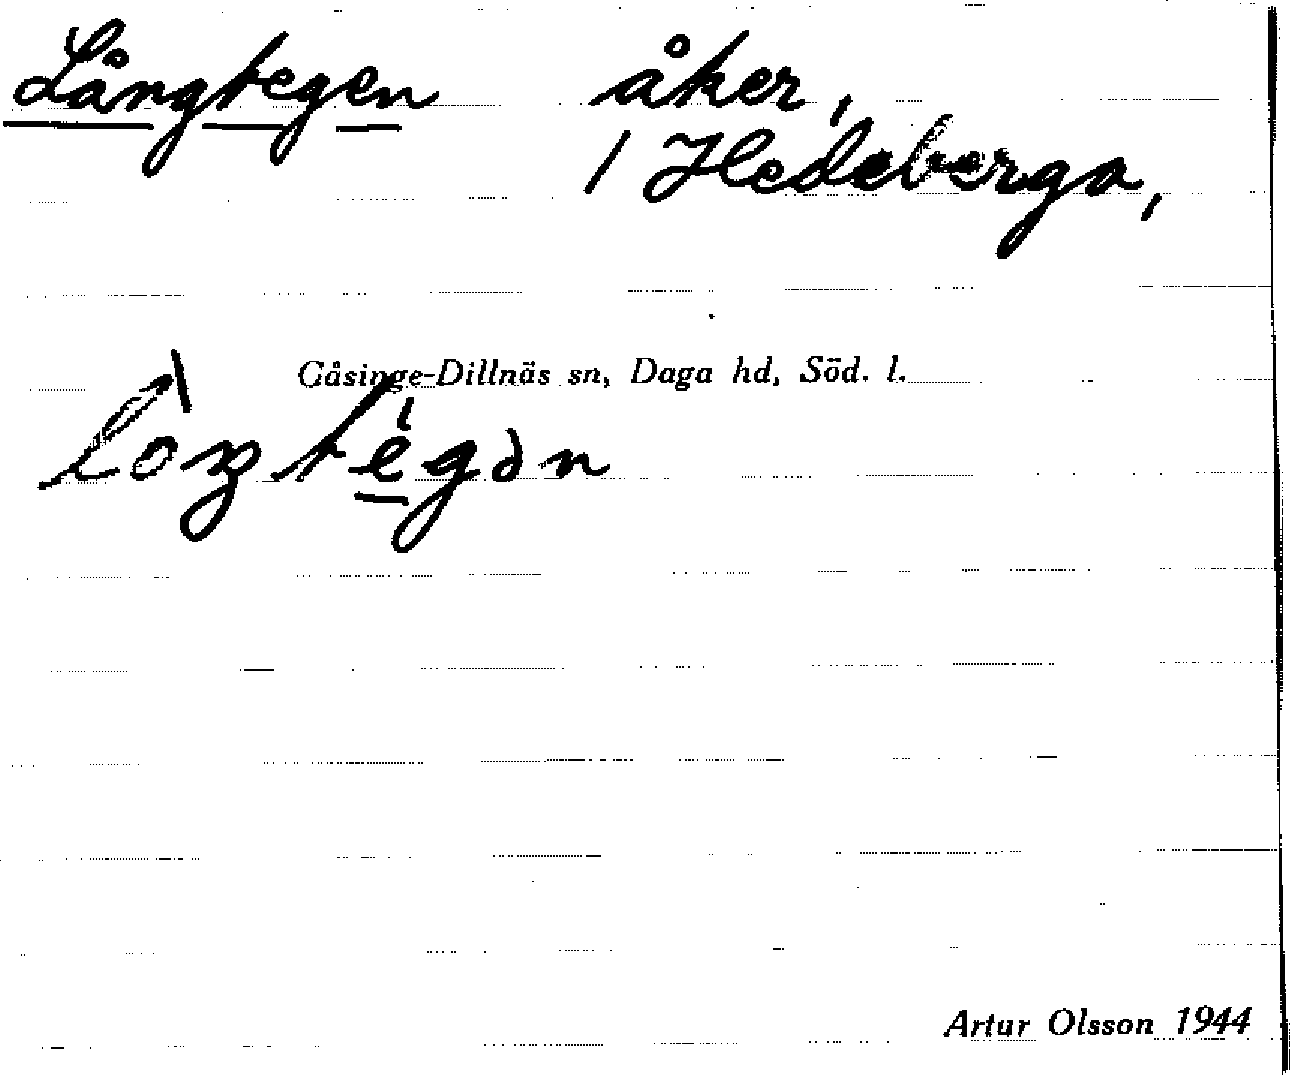 Långtegen åker,
/ Hedeberga,
Gåsinge-Dillnäs sn, Daga hd, Söd. l.
Artur Olsson 1944